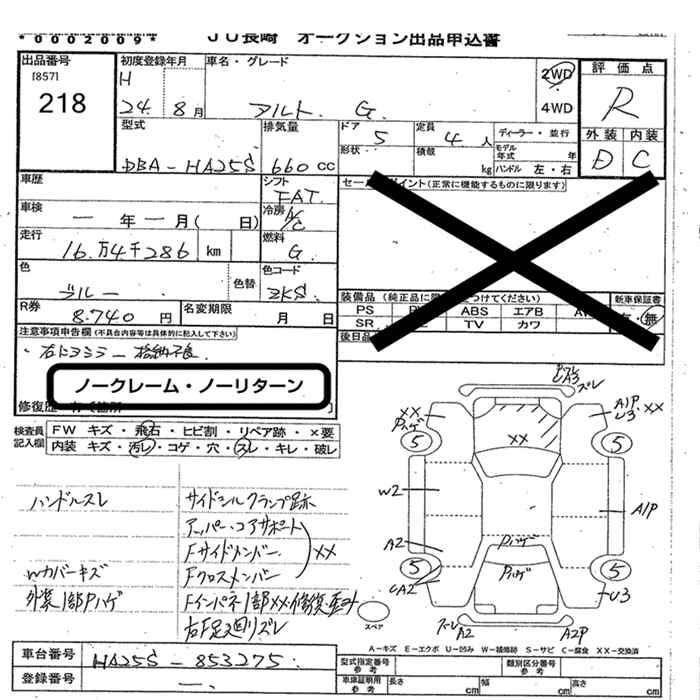 *0002009*
JU長崎 オークション出品申込書
出品番号
[857]
218
初度登録年月
H
24. 8月
車名・グレード
アルト. G.
2WD
4WD
評価点
R
外装 内装
D C
型式
DBA-HA25S
排気量
660 CC
ドア
5
形状
定員
4人
積載
kg
ディーラー・並行
モデル年式 年
ハンドル 左・右
車歴
シフト
FAT.
セールスポイント(正常に機能するものに限ります)
車検
一 年 一 月( 日)
冷房
A/C
走行
16万4千286 km
燃料
G.
色
ブルー
色替
色コード
ZKS.
R券
8.740 円
名変期限
月 日
装備品 (純正品に
つけてください)
PS
ABS エアB
SR
TV カワ
新車保証書
有・無
後日品
注意事項申告欄(不具合内容等は具体的に記入して下さい)
右ドアミラー 格納不良.
ノークレーム・ノーリターン
修復歴
検査員記入欄
FW キズ・飛石・ヒビ割・リペア跡・×要
内装 キズ・汚レ・コゲ・穴・スレ・キレ・破レ
ハンドルスレ
サイドシルクランプ跡
アッパーコアサポート
Fサイドメンバー XX
Wカバーキズ
Fクロスメンバー
外装1部Pハゲ
Fインパネ1部XX・修復・歪み
右F足廻リズレ
ズレ
A3
XX
Pハゲ
5
XX
A1P
U3・XX
5
W2
A1P
Pハゲ
A2
5
CA2
Pハゲ
5
U3
ズレ
A2
A2P
スペア
A-キズ E-エクボ U-凹み W-補修跡 S-サビ C-腐食 XX-交換済
車台番号
HA25S-853275.
登録番号
一.
型式指定番号
参考
類別区分番号
参考
車庫証明用
参考
長さ cm
幅 cm
高さ cm